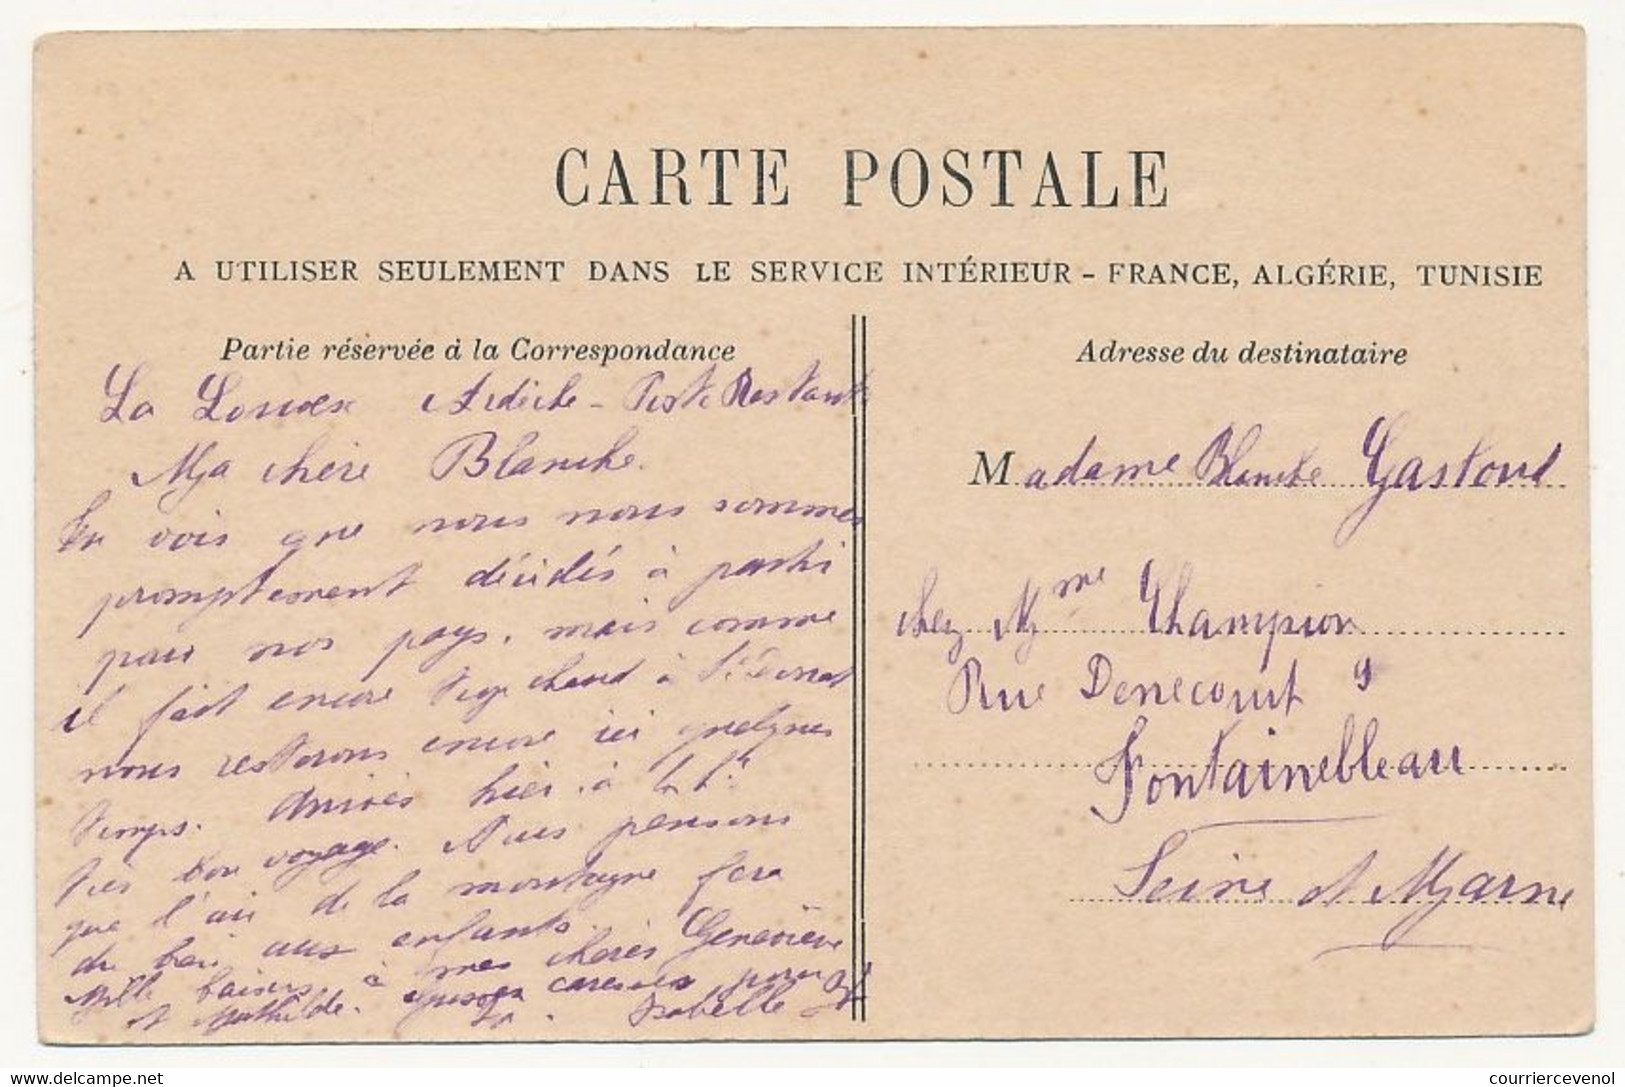 CARTE POSTALE
A UTILISER SEULEMENT DANS LE SERVICE INTÉRIEUR - FRANCE, ALGÉRIE, TUNISIE
Partie réservée à la Correspondance
La Louvesc Ardèche - Poste Restante
Ma chère Blanche.
Tu vois que nous nous sommes
promptement décidés à partir
pour nos pays. mais comme
il fait encore trop chaud à
nous resterons encore ici quelques
temps. Arrivés hier à
très bon voyage. Nous pensons
que l'air de la montagne fera
du bien aux enfants.
Mille baisers à mes chères Geneviève
et Mathilde. caresses pour
Isabelle
Adresse du destinataire
Madame Blanche Gastoud
chez Mme Champion
Rue Denecourt 9
Fontainebleau
Seine et Marne
www.delcampe.net
courriercevenol